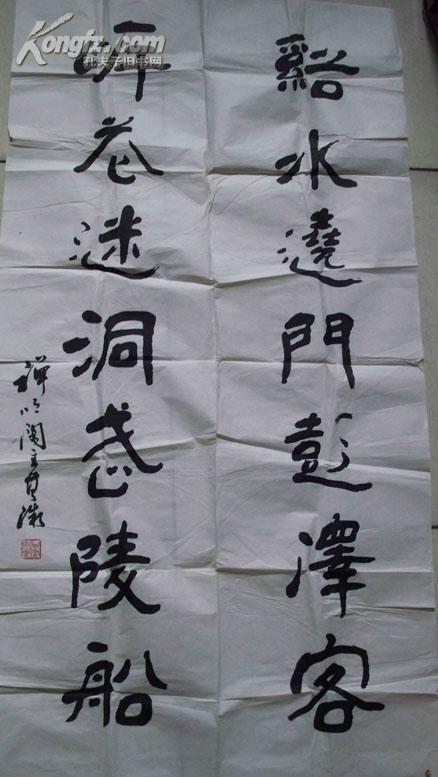 Kongfz.com
孔夫子旧书网
谿水遶門彭澤客
花迷洞武陵船
禪閣主